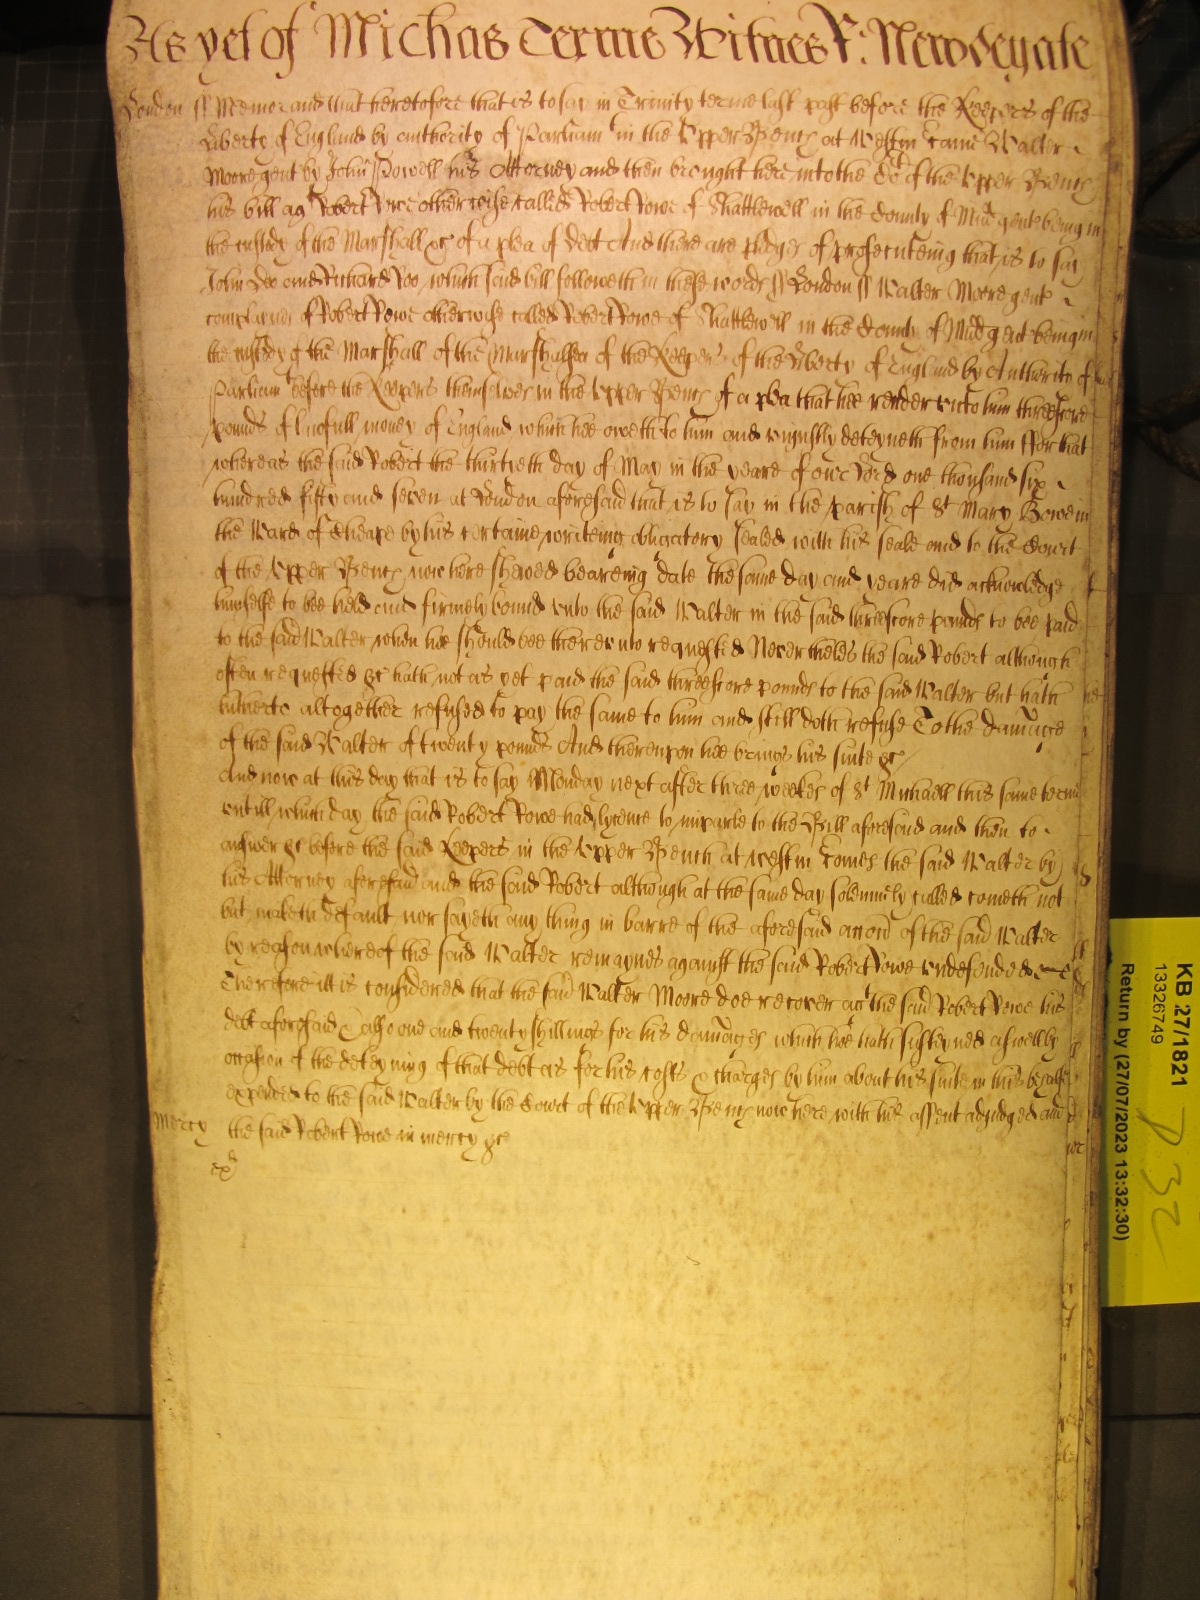 As yet of Michas Terme Witnes R: Newdegate
London ss Memorand that heretofore that is to say in Trinity terme last past before the Keepers of the
Liberty of England by authority of Parliamt in the Upper Bench at Westm came Walter
Moore gent by John Powell his Attorney and then brought here into the Cot of the Upper Bench
his bill agt Robert Rowe otherwise called Robert Rowe of Shacklewell in the County of Midd gent being in
the custody of the Marshall &c of a plea of debt And there are pledges of prosecuteing that is to say
John Doe and Richard Roo which said bill followeth in these words ss London ss Walter Moore gent
complaines of Robert Rowe otherwise called Robert Rowe of Shacklewell in the County of Midd gent being in
the custody of the Marshall of the Marshalsea of the Keepers of the Liberty of England by Authority of
Parliamt before the Keepers themselves in the Upper Bench of a plea that hee render unto him threescore
pounds of lawfull money of England which hee oweth to him and uniustly deteyneth from him ffor that
whereas the said Robert the thirtieth day of May in the yeare of our Lord one thousand six
hundred fifty and seven at London aforesaid that is to say in the parish of St Mary Bowe in
the Ward of Cheape by his certaine writeing obligatory sealed with his seale and to the Court
of the Upper Bench now here shewed beareing date the same day and yeare did acknowledge
himselfe to bee held and firmely bound unto the said Walter in the said threescore pounds to bee paid
to the said Walter when hee should bee thereunto requested Neverthelesse the said Robert although
often requested &c hath not as yet paid the said threescore pounds to the said Walter but hath
hitherto altogether refused to pay the same to him and still doth refuse To the damage
of the said Walter of twenty pounds And thereupon hee brings his suite &c
And now at this day that is to say Monday next after three weekes of St Michaell this same terme
untill which day the said Robert Rowe had lycence to imparle to the Bill aforesaid and then to
answer &c before the said Keepers in the Upper Bench at westm comes the said Walter by
his Attorney aforesaid and the said Robert although at the same day solemnely called cometh not
but maketh default nor sayeth any thing in barre of the aforesaid accon of the said Walter
by reason whereof the said Walter remaynes against the said Robert Rowe undefended
Therefore itt is considered that the said Walter Moore doe recover agt the said Robert Rowe his
debt aforesaid & also one and twenty shillings for his damages which hee hath susteyned aswell by
occasion of the deteyning of that debt as for his costs & charges by him about his suite in this behalfe
expended to the said Walter by the Court of the Upper Bench now here with his assent adjudged and
Mercy the said Robert Rowe in mercy &c
KB 27/1821
13326749
Return by (27/07/2023 13:32:30)
P 32